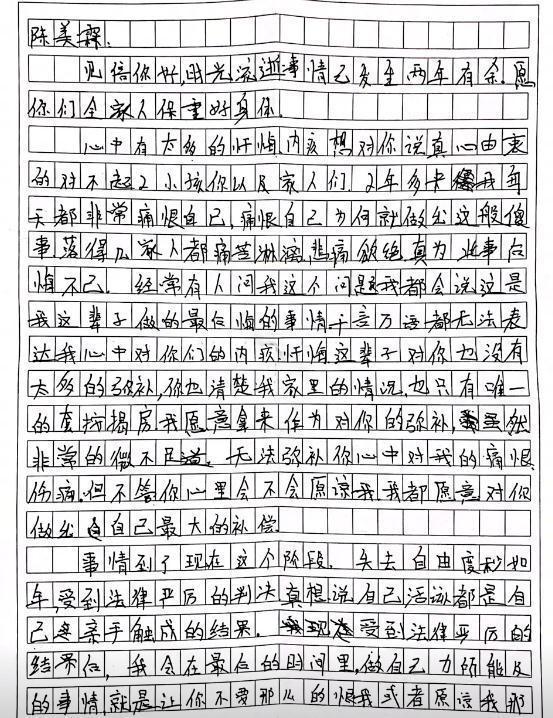 陈美霖.
见信你好,时光流逝事情已发至两年有余.愿
你们全家人保重好身体.
心中有太多的忏悔内疚想对你说真心由衷
的对不起2小孩你以及家人们.2年多来我每
天都非常痛恨自己,痛恨自己为何就做出这般傻
事.落得几家人都痛苦淋漓,悲痛欲绝真为此事后
悔不已.经常有人问我这个问题我都会说这是
我这辈子做的最后悔的事情千言万语都无法表
达我心中对你们的内疚忏悔这辈子对你也没有
太多的弥补,你也清楚我家里的情况,也只有唯一
的套按揭房我愿意拿来作为对你的弥补,虽然
非常的微不足道.无法弥补你心中对我的痛恨
伤痛.但不管你心里会不会原谅我我都愿意对你
做出自己最大的补偿
事情到了现在这个阶段.失去自由度秒如
年,受到法律严厉的判决真想说自己活该都是自
己亲手触成的结果.受到法律严厉的
结果后,我会在最后的时间里,做自己力所能及
的事情,就是让你不要那么的恨我或者原谅我那